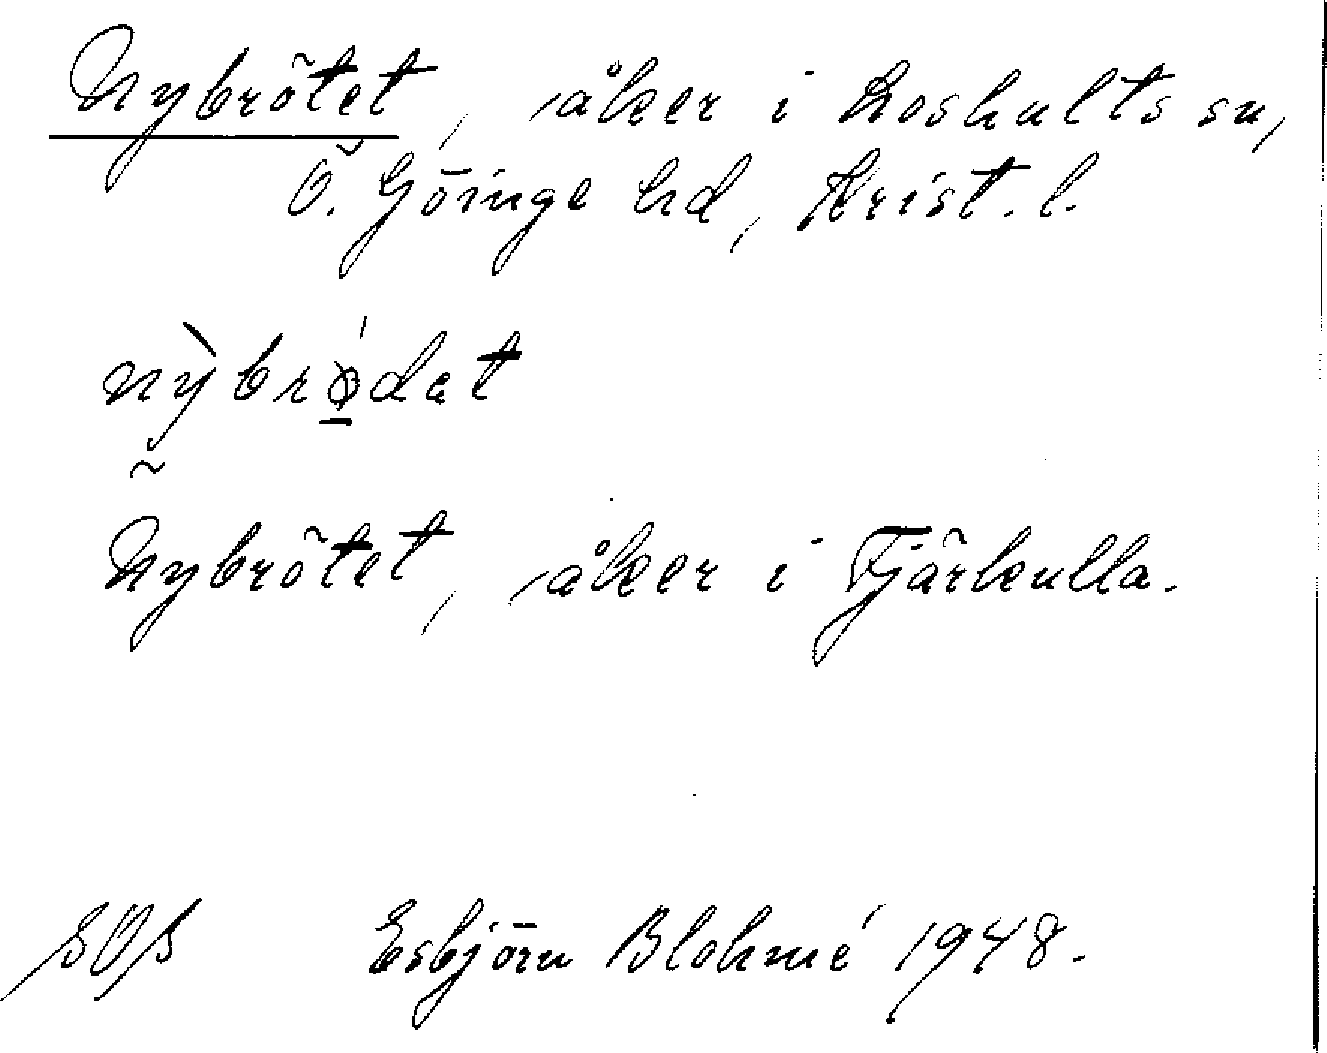 Nybrötet, åker i Loshults sn,
Ö. Göinge hd, Krist. l.
nỳbrǿdat
Nybrötet, åker i Tjärkulla.
SOS Esbjörn Blohmé 1948.